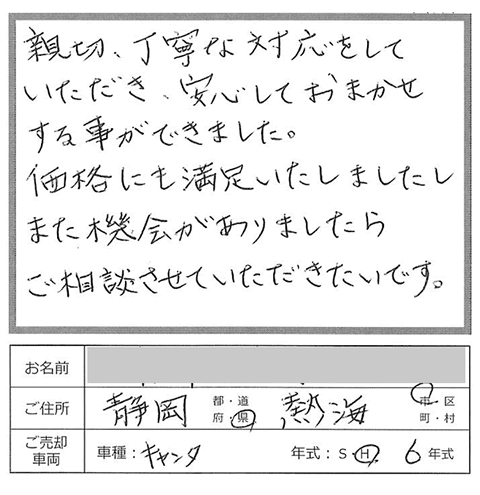 親切、丁寧な対応をして
いただき、安心しておまかせ
する事ができました。
価格にも満足いたしましたし
また機会がありましたら
ご相談させていただきたいです。
お名前
ご住所 静岡 都・道 府・県 熱海 市・区 町・村
ご売却車両 車種：キャンタ 年式：S・H 6 年式